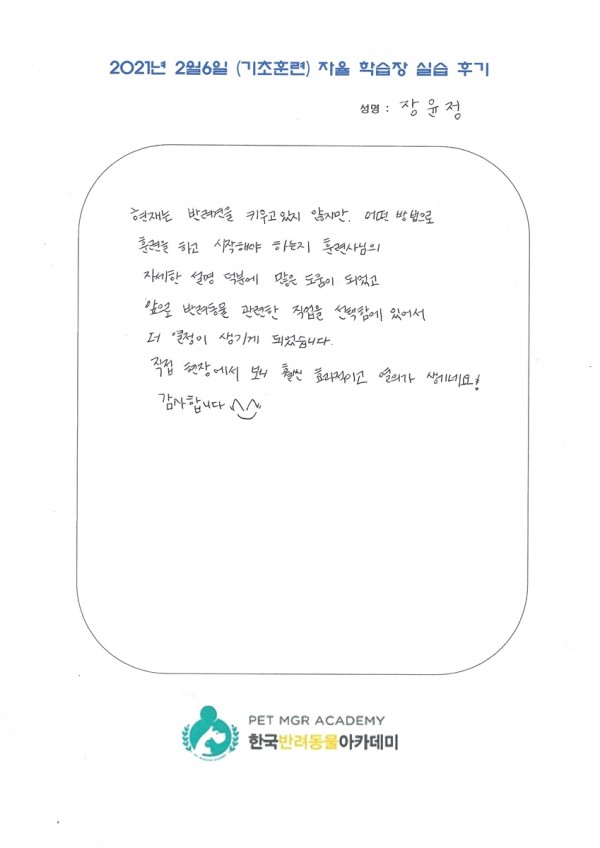 2021년 2월6일 (기초훈련) 자율 학습장 실습 후기
성명 : 장윤정
현재는 반려견을 키우고 있지 않지만, 어떤 방법으로
훈련을 하고 시작해야 하는지 훈련사님의
자세한 설명 덕분에 많은 도움이 되었고
앞으로 반려동물 관련한 직업을 선택함에 있어서
더 열정이 생기게 되었습니다.
직접 현장에서 보니 훨씬 효과적이고 열의가 생기네요!
감사합니다 ^^
PET MGR ACADEMY
한국반려동물아카데미